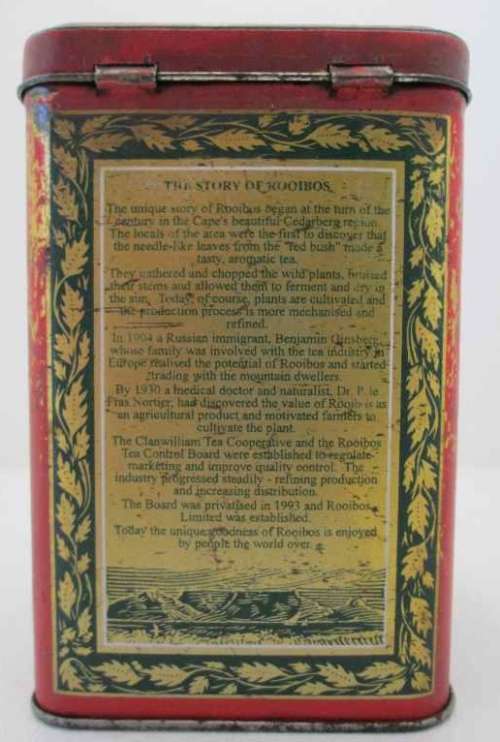 THE STORY OF ROOIBOS
The unique story of Rooibos began at the turn of the
century in the Cape's beautiful Cedarberg region.
The locals of the area were the first to discover that
the needle-like leaves from the "red bush" made a
tasty, aromatic tea.
They gathered and chopped the wild plants, bruised
their stems and allowed them to ferment and dry in
the sun. Today, of course, plants are cultivated and
the production process is more mechanised and
refined.
In 1904 a Russian immigrant, Benjamin Ginsberg,
whose family was involved with the tea industry in
Europe realised the potential of Rooibos and started
trading with the mountain dwellers.
By 1930 a medical doctor and naturalist, Dr. P. le
Fras Nortier, had discovered the value of Rooibos as
an agricultural product and motivated farmers to
cultivate the plant.
The Clanwilliam Tea Cooperative and the Rooibos
Tea Control Board were established to regulate
marketing and improve quality control. The
industry progressed steadily - refining production
and increasing distribution.
The Board was privatised in 1993 and Rooibos
Limited was established.
Today the unique goodness of Rooibos is enjoyed
by people the world over.